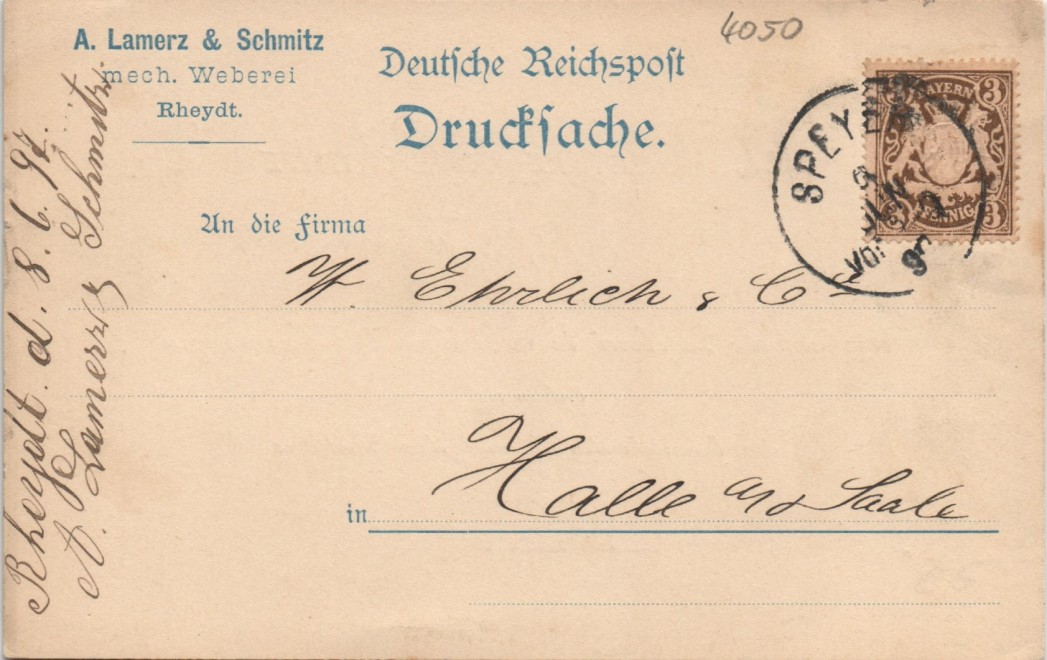 A. Lamerz & Schmitz
mech. Weberei
Rheydt.
Deutsche Reichspost
Drucksache.
4050
BAYERN
3 3
3 PFENNIG 3
SPEYER
9
JUN
VOR
9
An die Firma
W. Ehrlich & Cie
in Halle a/d Saale
Rheydt. d. 8. 6. 97.
A. Lamerz & Schmitz